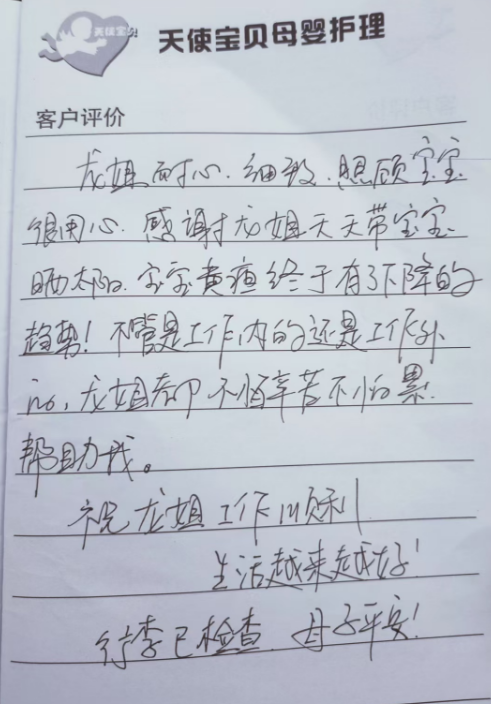 天使宝贝
天使宝贝母婴护理
客户评价
龙姐耐心、细致、照顾宝宝
很用心。感谢龙姐天天带宝宝
晒太阳、宝宝黄疸终于有了下降的
趋势！不管是工作内的还是工作外
的，龙姐都不怕辛苦不怕累
帮助我。
祝龙姐工作顺利
生活越来越好！
行李已检查、母子平安！